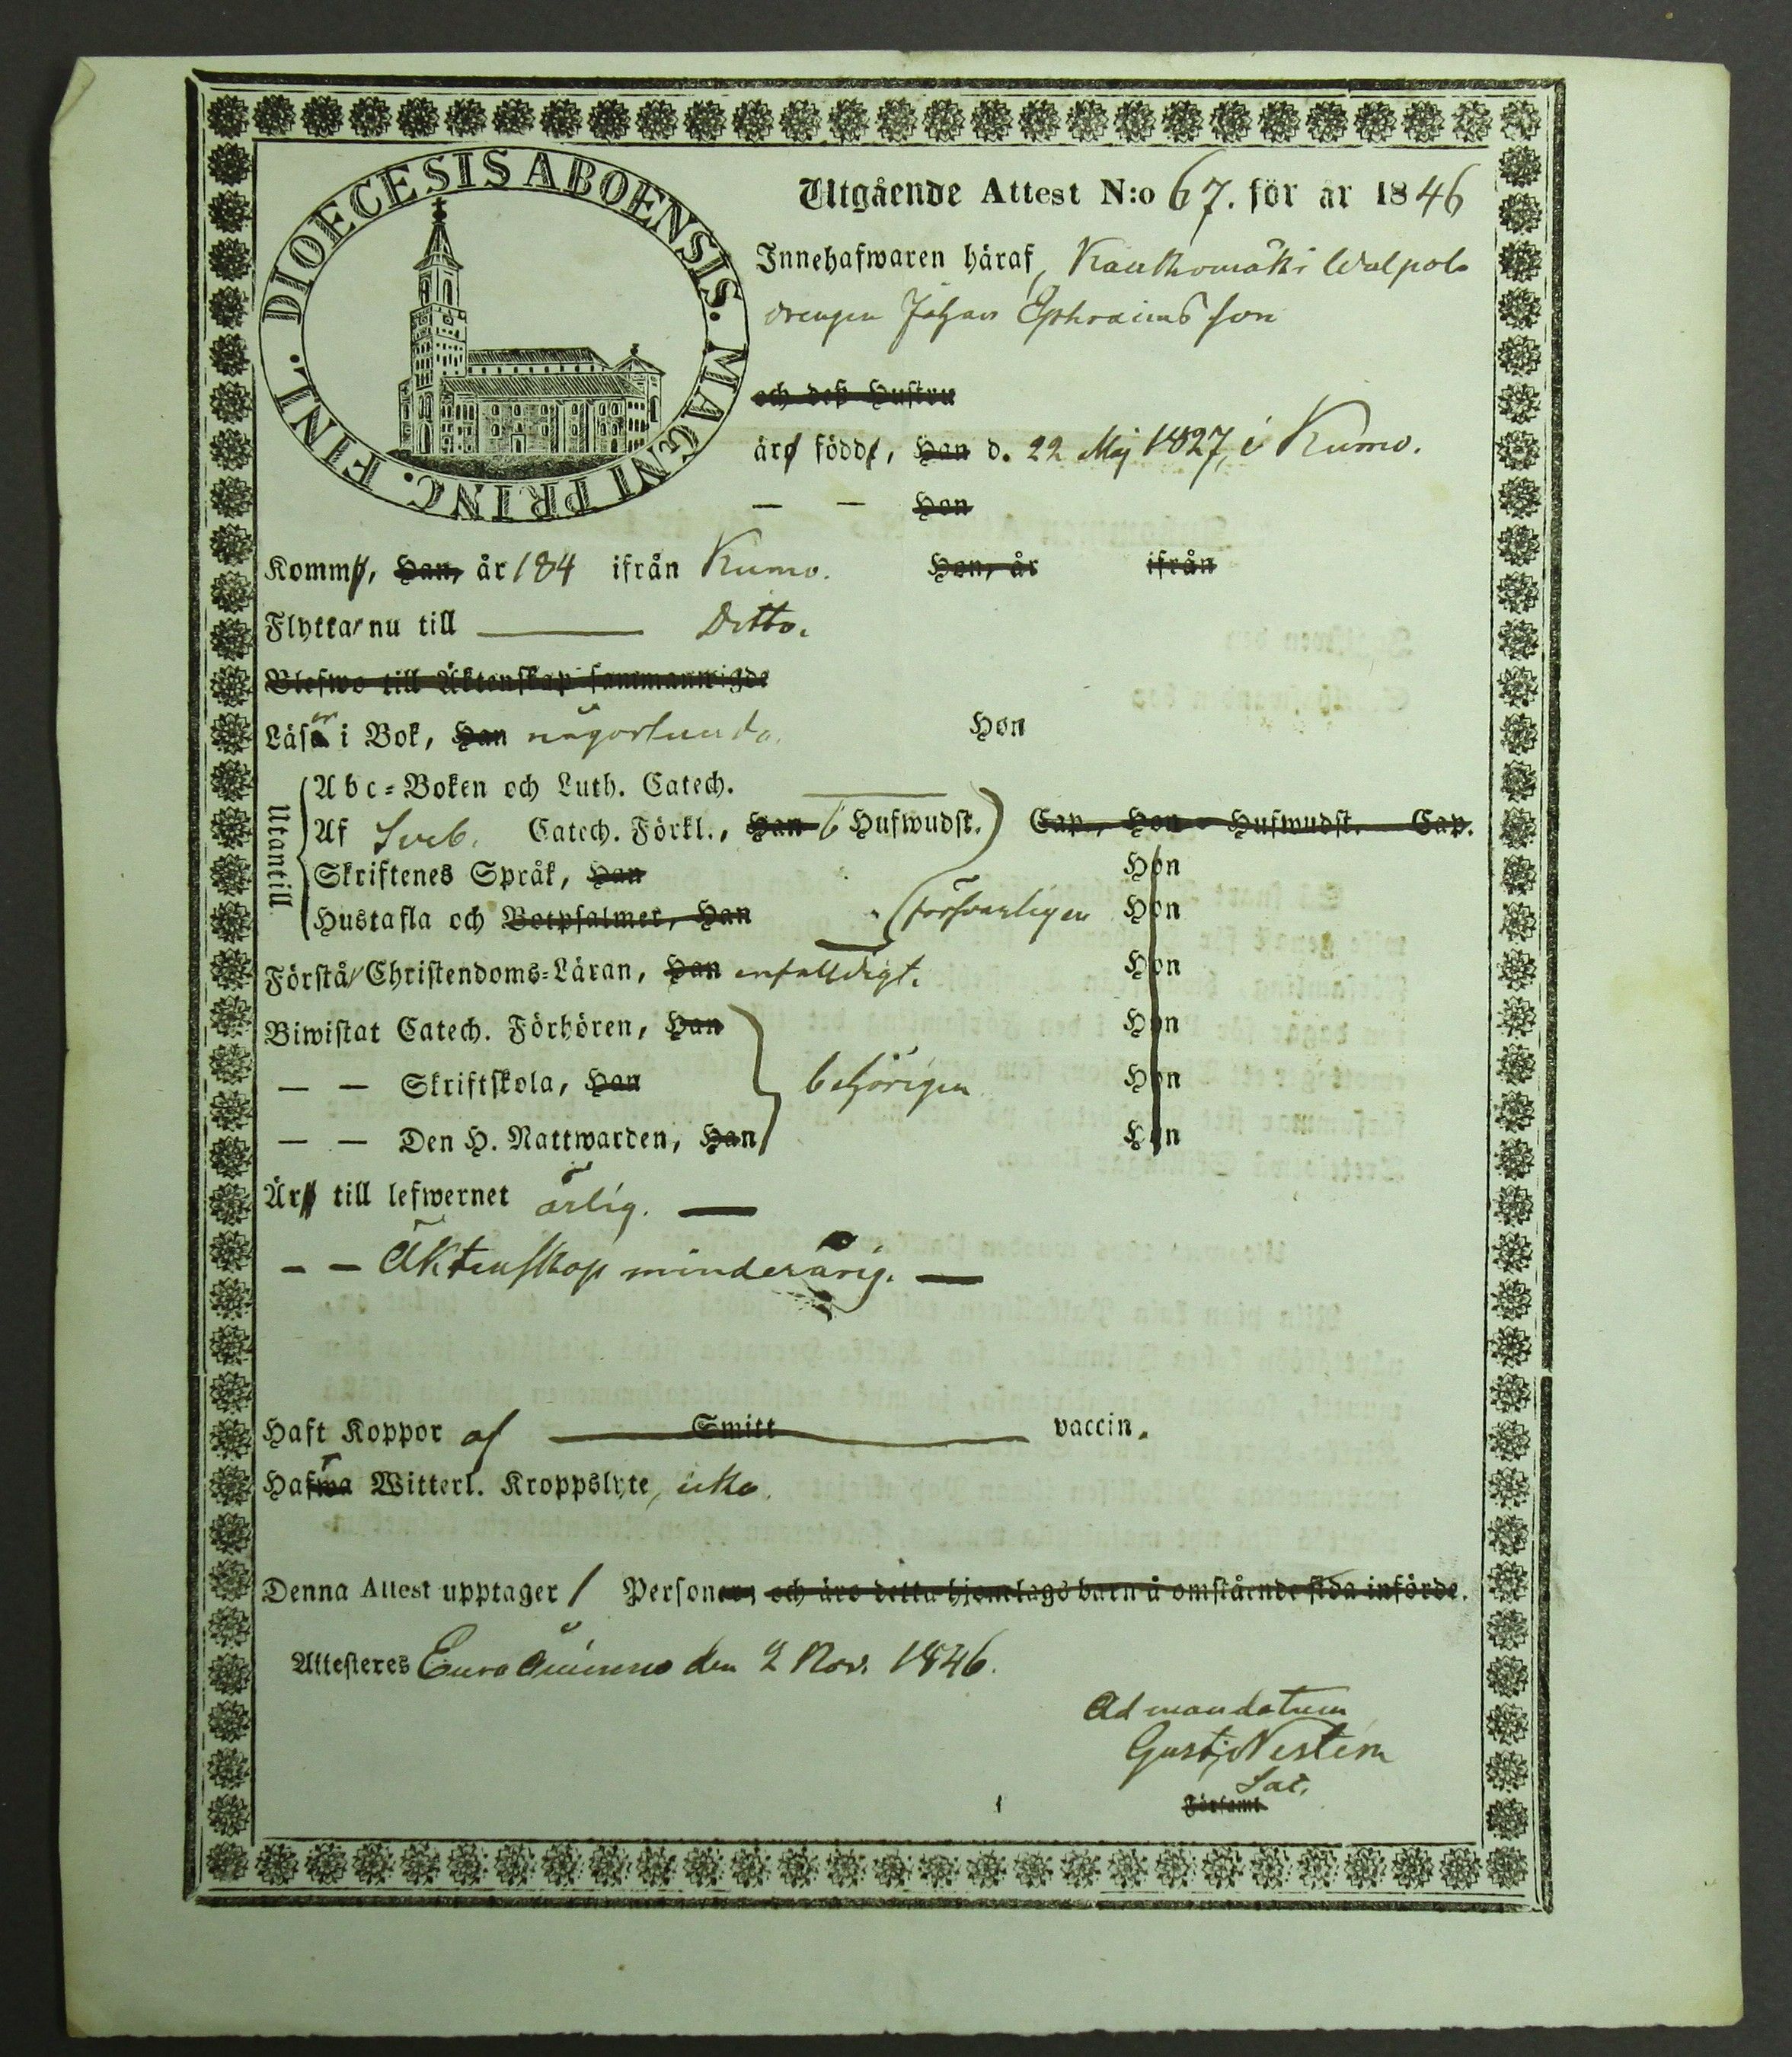 DIOECESIS ABOENSIS. MAGNI PRINC. FINL.
Utgående Attest N:o 67. för år 1846
Innehafwaren häraf, Kaukomäki Walpola
drengen Johan Ephraims son
och deß Hustru
äro född, Han d. 22 Maj 1827, i Kumo.
— — Hon
Komm, Han, år 184 ifrån Kumo. Hon, år ifrån
Flytta nu till ——— Ditto.
Blefwo till Äktenskap sammanwigde
Läser i Bok, Han någorlunda. Hon
Utantill
Abc-Boken och Luth. Catech.
Af Sveb. Catech. Förkl., Han 6 Hufwudst. Cap., Hon - Hufwudst. Cap.
Skriftenes Språk, Han Hon
Hustafla och Botpsalmer, Han försvarligen Hon
Förstå Christendoms-Läran, Han enfaldigt. Hon
Biwistat Catech. Förhören, Han Hon
— — Skriftskola, Han behörigen Hon
— — Den H. Nattwarden, Han Hon
Är till lefwernet ärlig. —
— — Äktenskap minderårig. —
Haft Koppor af Smitt vaccin.
Hafwa Witterl. Kroppslyte, icke.
Denna Attest upptager 1 Personer, och äro detta hjonelags barn å omstående sida införde.
Attesteres Eura den 2 Nov. 1846.
Ad mandatum
Gust. Nestém
Sac.
Församl